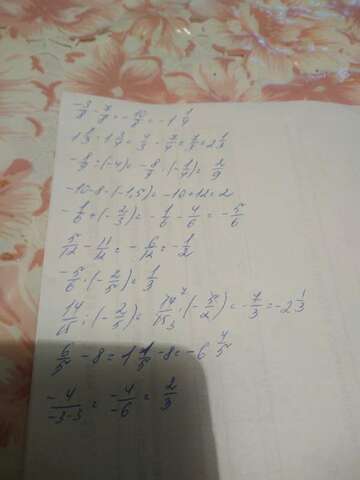 -3/9 - 7/9 = -10/9 = -1 1/9
1 1/3 · 1 3/4 = 4/3 · 7/4 = 7/3 = 2 1/3
-8/9 : (-4) = -8/9 · (-1/4) = 2/9
-10-8·(-1,5) = -10+12 = 2
-1/6 + (-2/3) = -1/6 - 4/6 = -5/6
5/12 - 11/12 = -6/12 = -1/2
-5/6 · (-2/5) = 1/3
14/15 : (-2/5) = 14/15 · (-5/2) = -7/3 = -2 1/3
6/5 - 8 = 1 1/5 - 8 = -6 4/5
-4/-3-3 = -4/-6 = 2/3